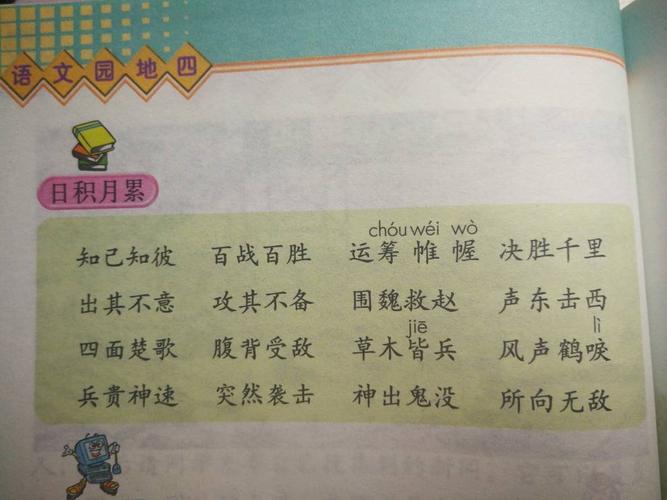 语文园地四
日积月累
chóu wéi wò
知己知彼 百战百胜 运筹帷幄 决胜千里
出其不意 攻其不备 围魏救赵 声东击西
jiē lì
四面楚歌 腹背受敌 草木皆兵 风声鹤唳
兵贵神速 突然袭击 神出鬼没 所向无敌